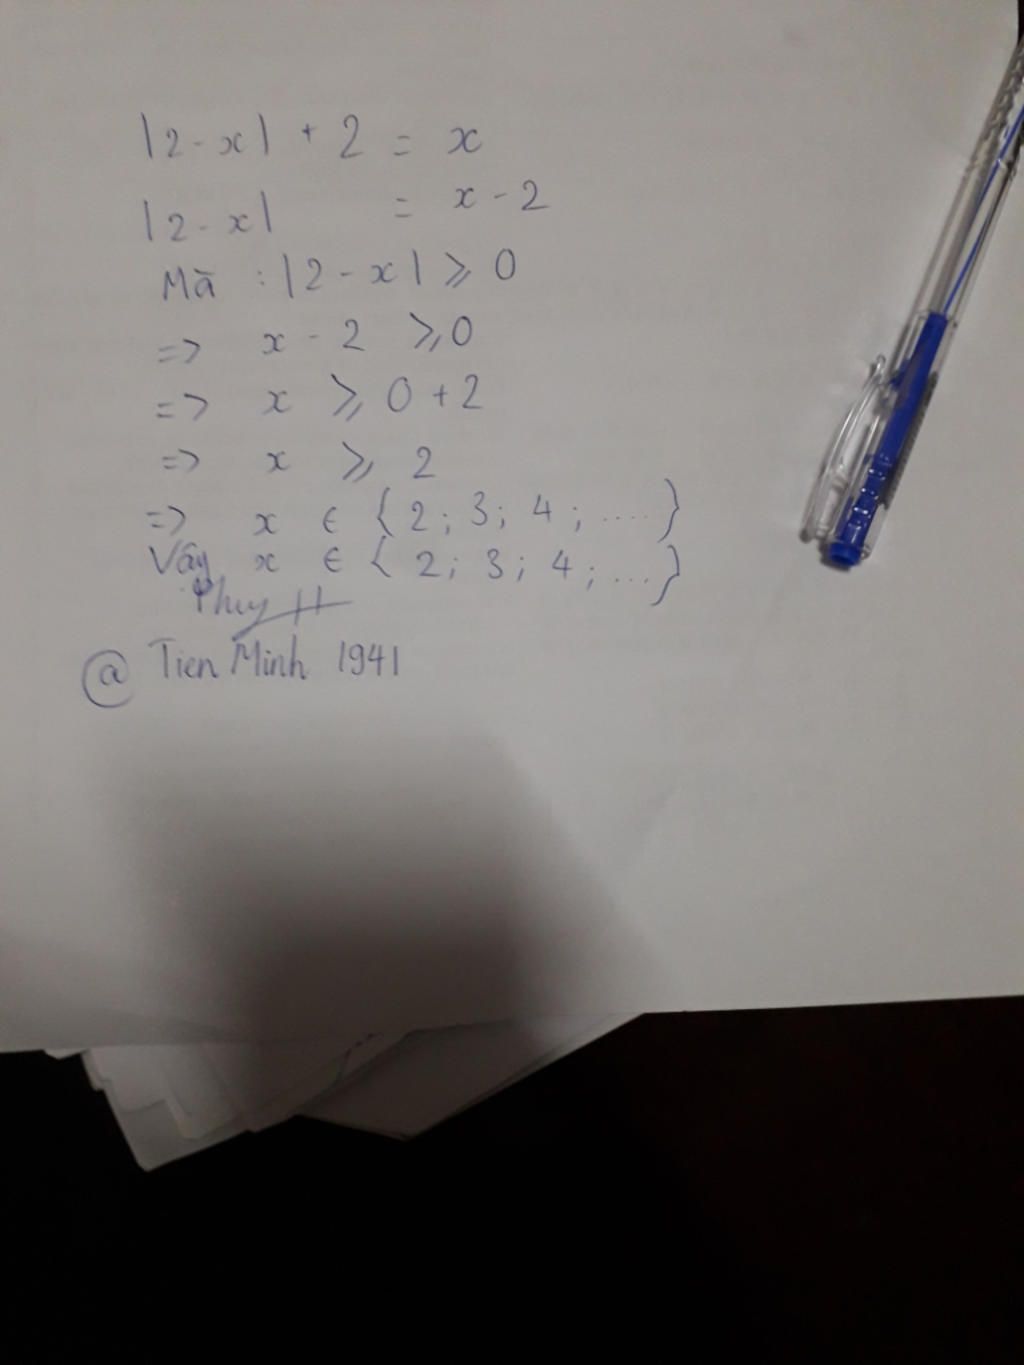 |2-x| + 2 = x
|2-x| = x-2
Mà : |2-x| ⩾ 0
=> x - 2 ⩾ 0
=> x ⩾ 0 + 2
=> x ⩾ 2
=> x ∈ { 2; 3; 4; .... }
Vậy x ∈ { 2; 3; 4; ... }
@ Tien Minh 1941